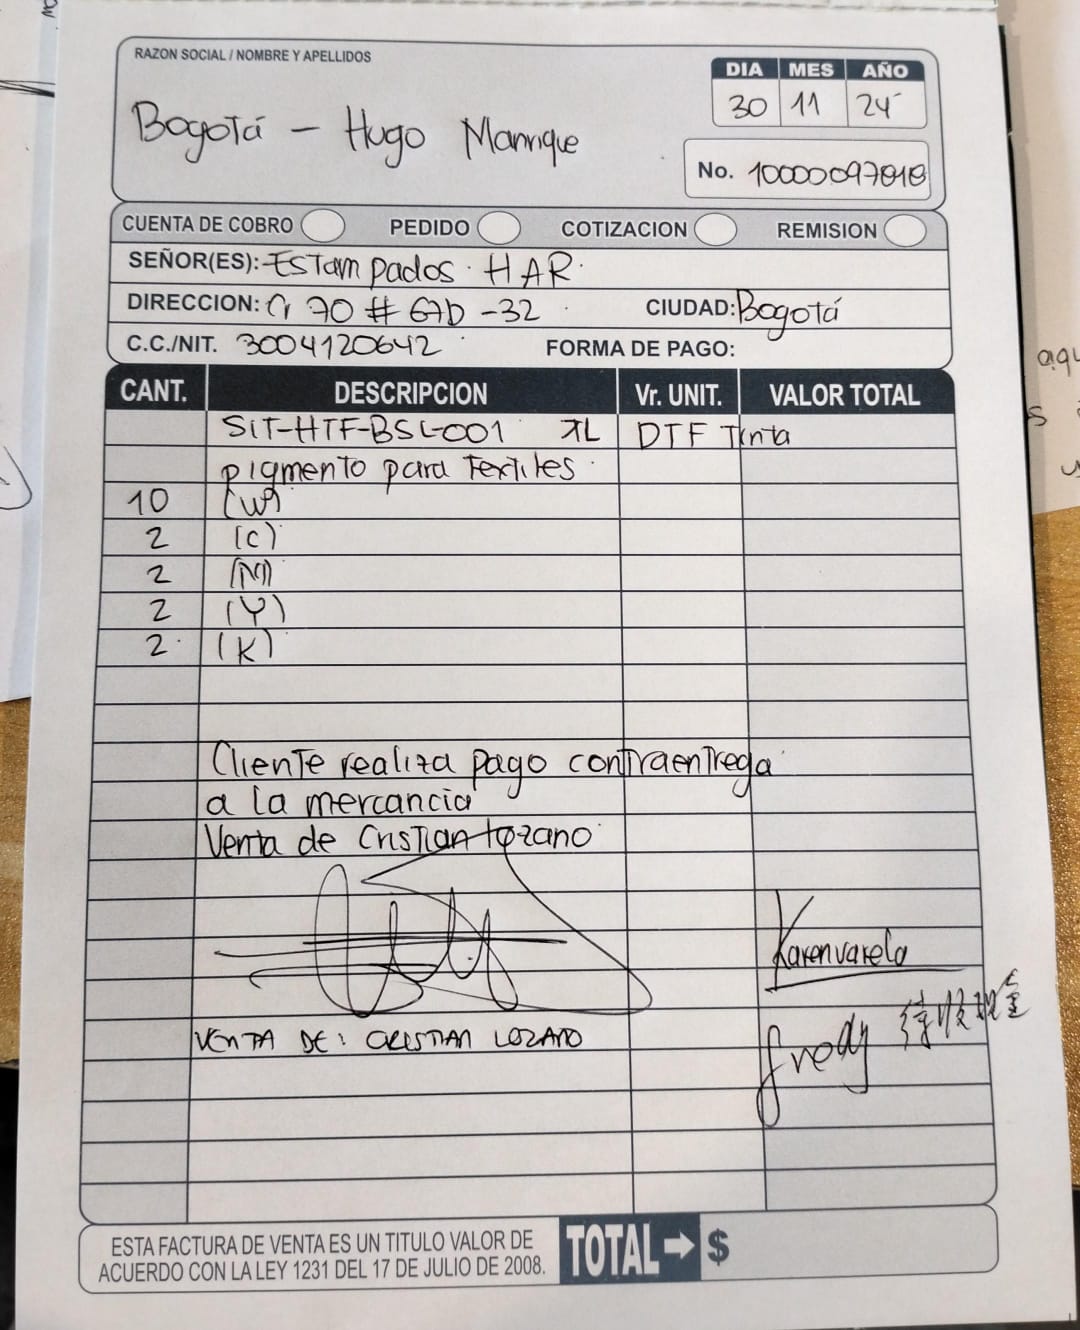 RAZON SOCIAL / NOMBRE Y APELLIDOS
DIA MES AÑO
30 11 24
Bogotá - Hugo Manrique
No. 10000097818
CUENTA DE COBRO PEDIDO COTIZACION REMISION
SEÑOR(ES): Estampados HAR
DIRECCION: Cr 70 # 67D -32 CIUDAD: Bogotá
C.C./NIT. 3004120642 FORMA DE PAGO:
CANT. DESCRIPCION Vr. UNIT. VALOR TOTAL
SIT-HTF-BSL-001 1L DTF Tinta
pigmento para Textiles
10 (W)
2 (C)
2 (M)
2 (Y)
2 (K)
Cliente realiza pago contraentrega
a la mercancia
Venta de Cristian Lozano
Karen varela
VENTA DE: CRISTIAN LOZANO
fredy 待收现金
ESTA FACTURA DE VENTA ES UN TITULO VALOR DE
ACUERDO CON LA LEY 1231 DEL 17 DE JULIO DE 2008.
TOTAL $